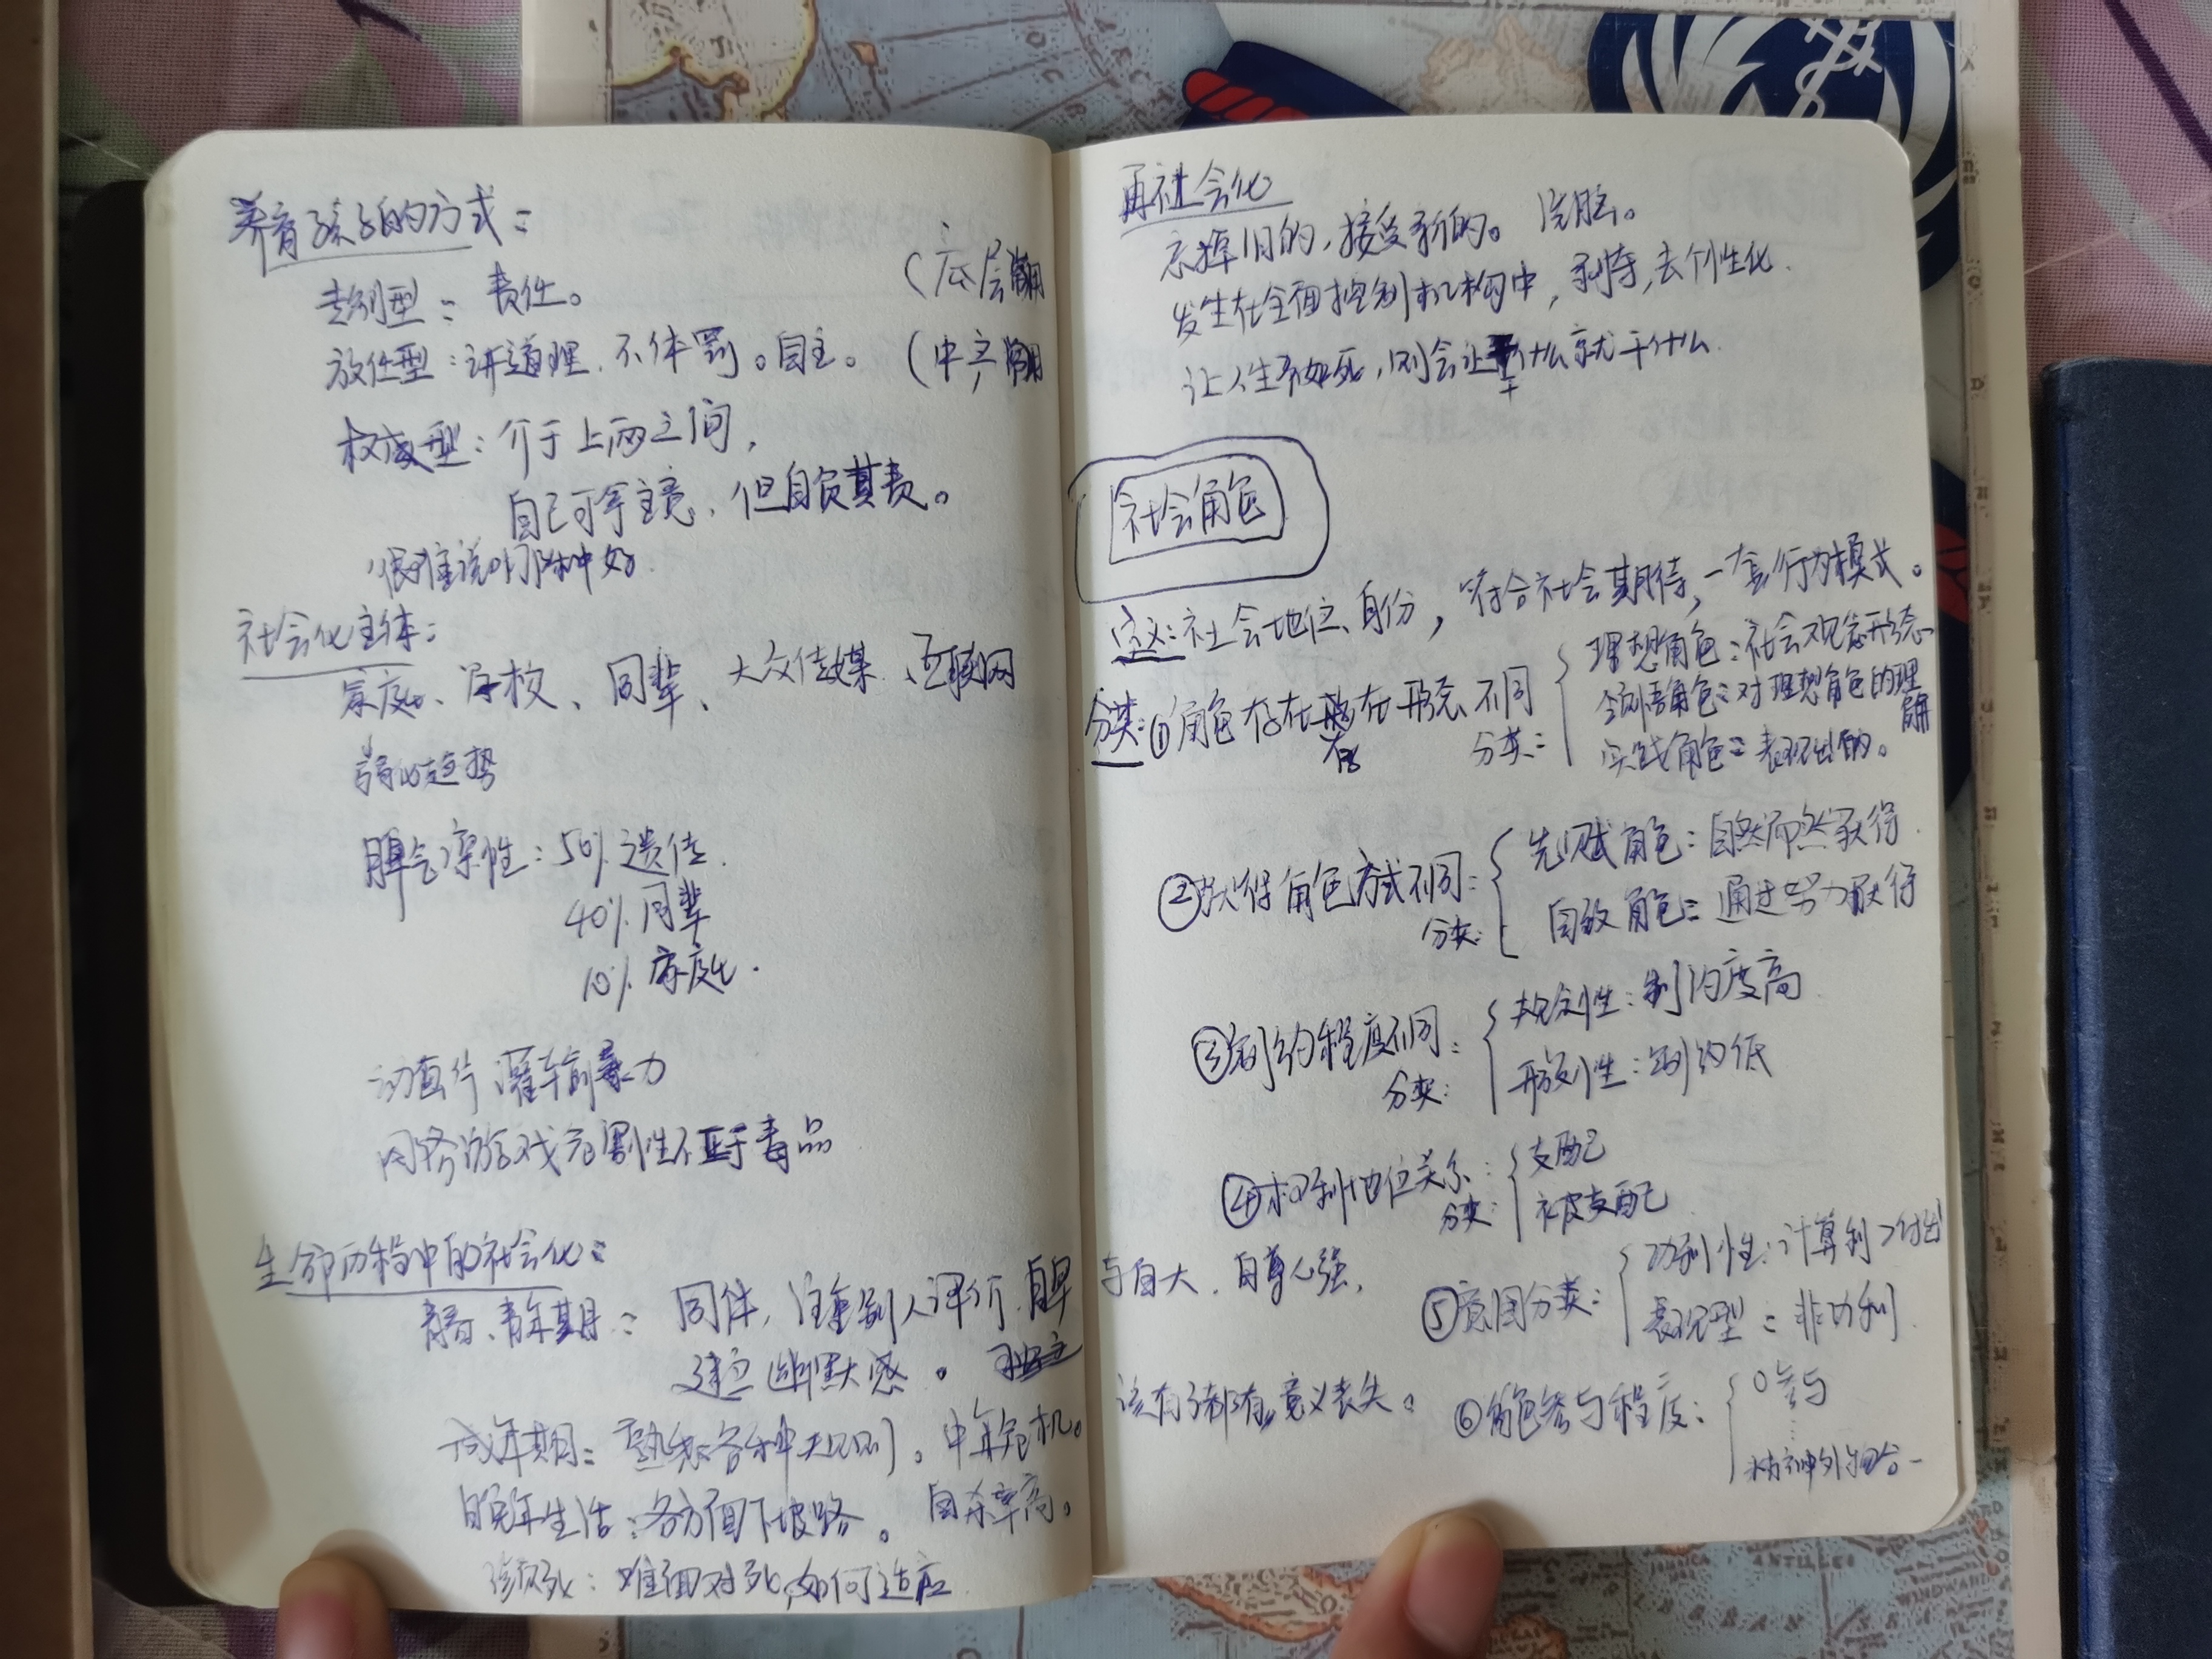 养育孩子的方式：
专制型：责任。（底层常用
放任型：讲道理、不体罚。自主。（中产常用
权威型：介于上两之间，
自己可拿主意，但自负其责。
很难说哪种好
社会化主体：
家庭、学校、同辈、大众传媒、互联网
弱化趋势
脾气禀性：50% 遗传
40% 同辈
10% 家庭.
动画片灌输暴力
网络游戏危害性不亚于毒品
生命历程中的社会化：
青春、青年期：同伴，注重别人评价，自卑与自大，自尊心强，
建立幽默感。独立
成年期：熟悉各种规则。中年危机。该有了都有，意义丧失。
晚年生活：各方面下坡路。自杀率高。
死：难面对死，如何适应
再社会化
丢掉旧的，接受新的。洗脑。
发生在全面控制机构中，剥夺，去个性化.
让人生不如死，则会让干什么就干什么.
社会角色
定义：社会地位、身份，符合社会期待，一套行为模式。
分类：①角色存在形态不同
分类：
理想角色：社会观念形态
领悟角色：对理想角色的理解
实践角色：表现出的。
②获得角色方式不同：
分类：
先赋角色：自然而然获得
自致角色：通过努力获得
③制约程度不同：
分类：
规定性：制约度高
开放性：制约低
④权利地位关系：
分类：
支配
被支配
⑤意图分类：
功利性：计算利>付出
表现型：非功利
⑥角色参与程度：
0参与
⋮
精神外物合一